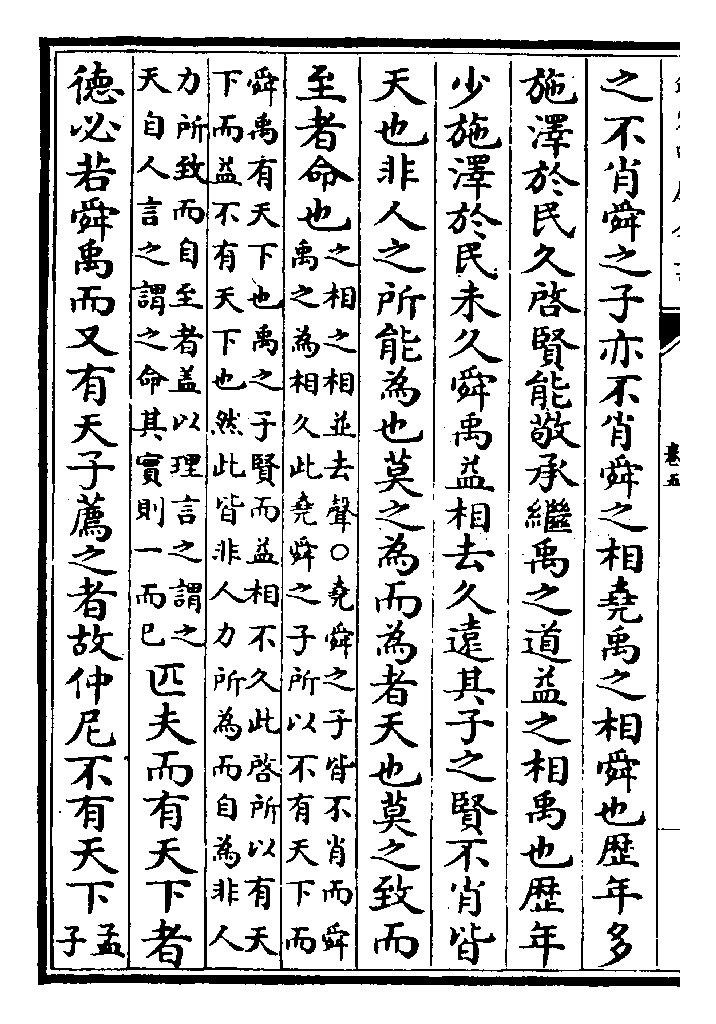 卷五
之不肖舜之子亦不肖舜之相堯禹之相舜也歴年多
施澤於民久啓賢能敬承繼禹之道益之相禹也歴年
少施澤於民未久舜禹益相去久遠其子之賢不肖皆
天也非人之所能為也莫之為而為者天也莫之致而
至者命也
之相之相並去聲○堯舜之子皆不肖而舜
禹之為相久此堯舜之子所以不有天下而
舜禹有天下也禹之子賢而益相不久此啓所以有天
下而益不有天下也然此皆非人力所為而自為非人
力所致而自至者盖以理言之謂之
天自人言之謂之命其實則一而已
匹夫而有天下者
德必若舜禹而又有天子薦之者故仲尼不有天下
孟
子